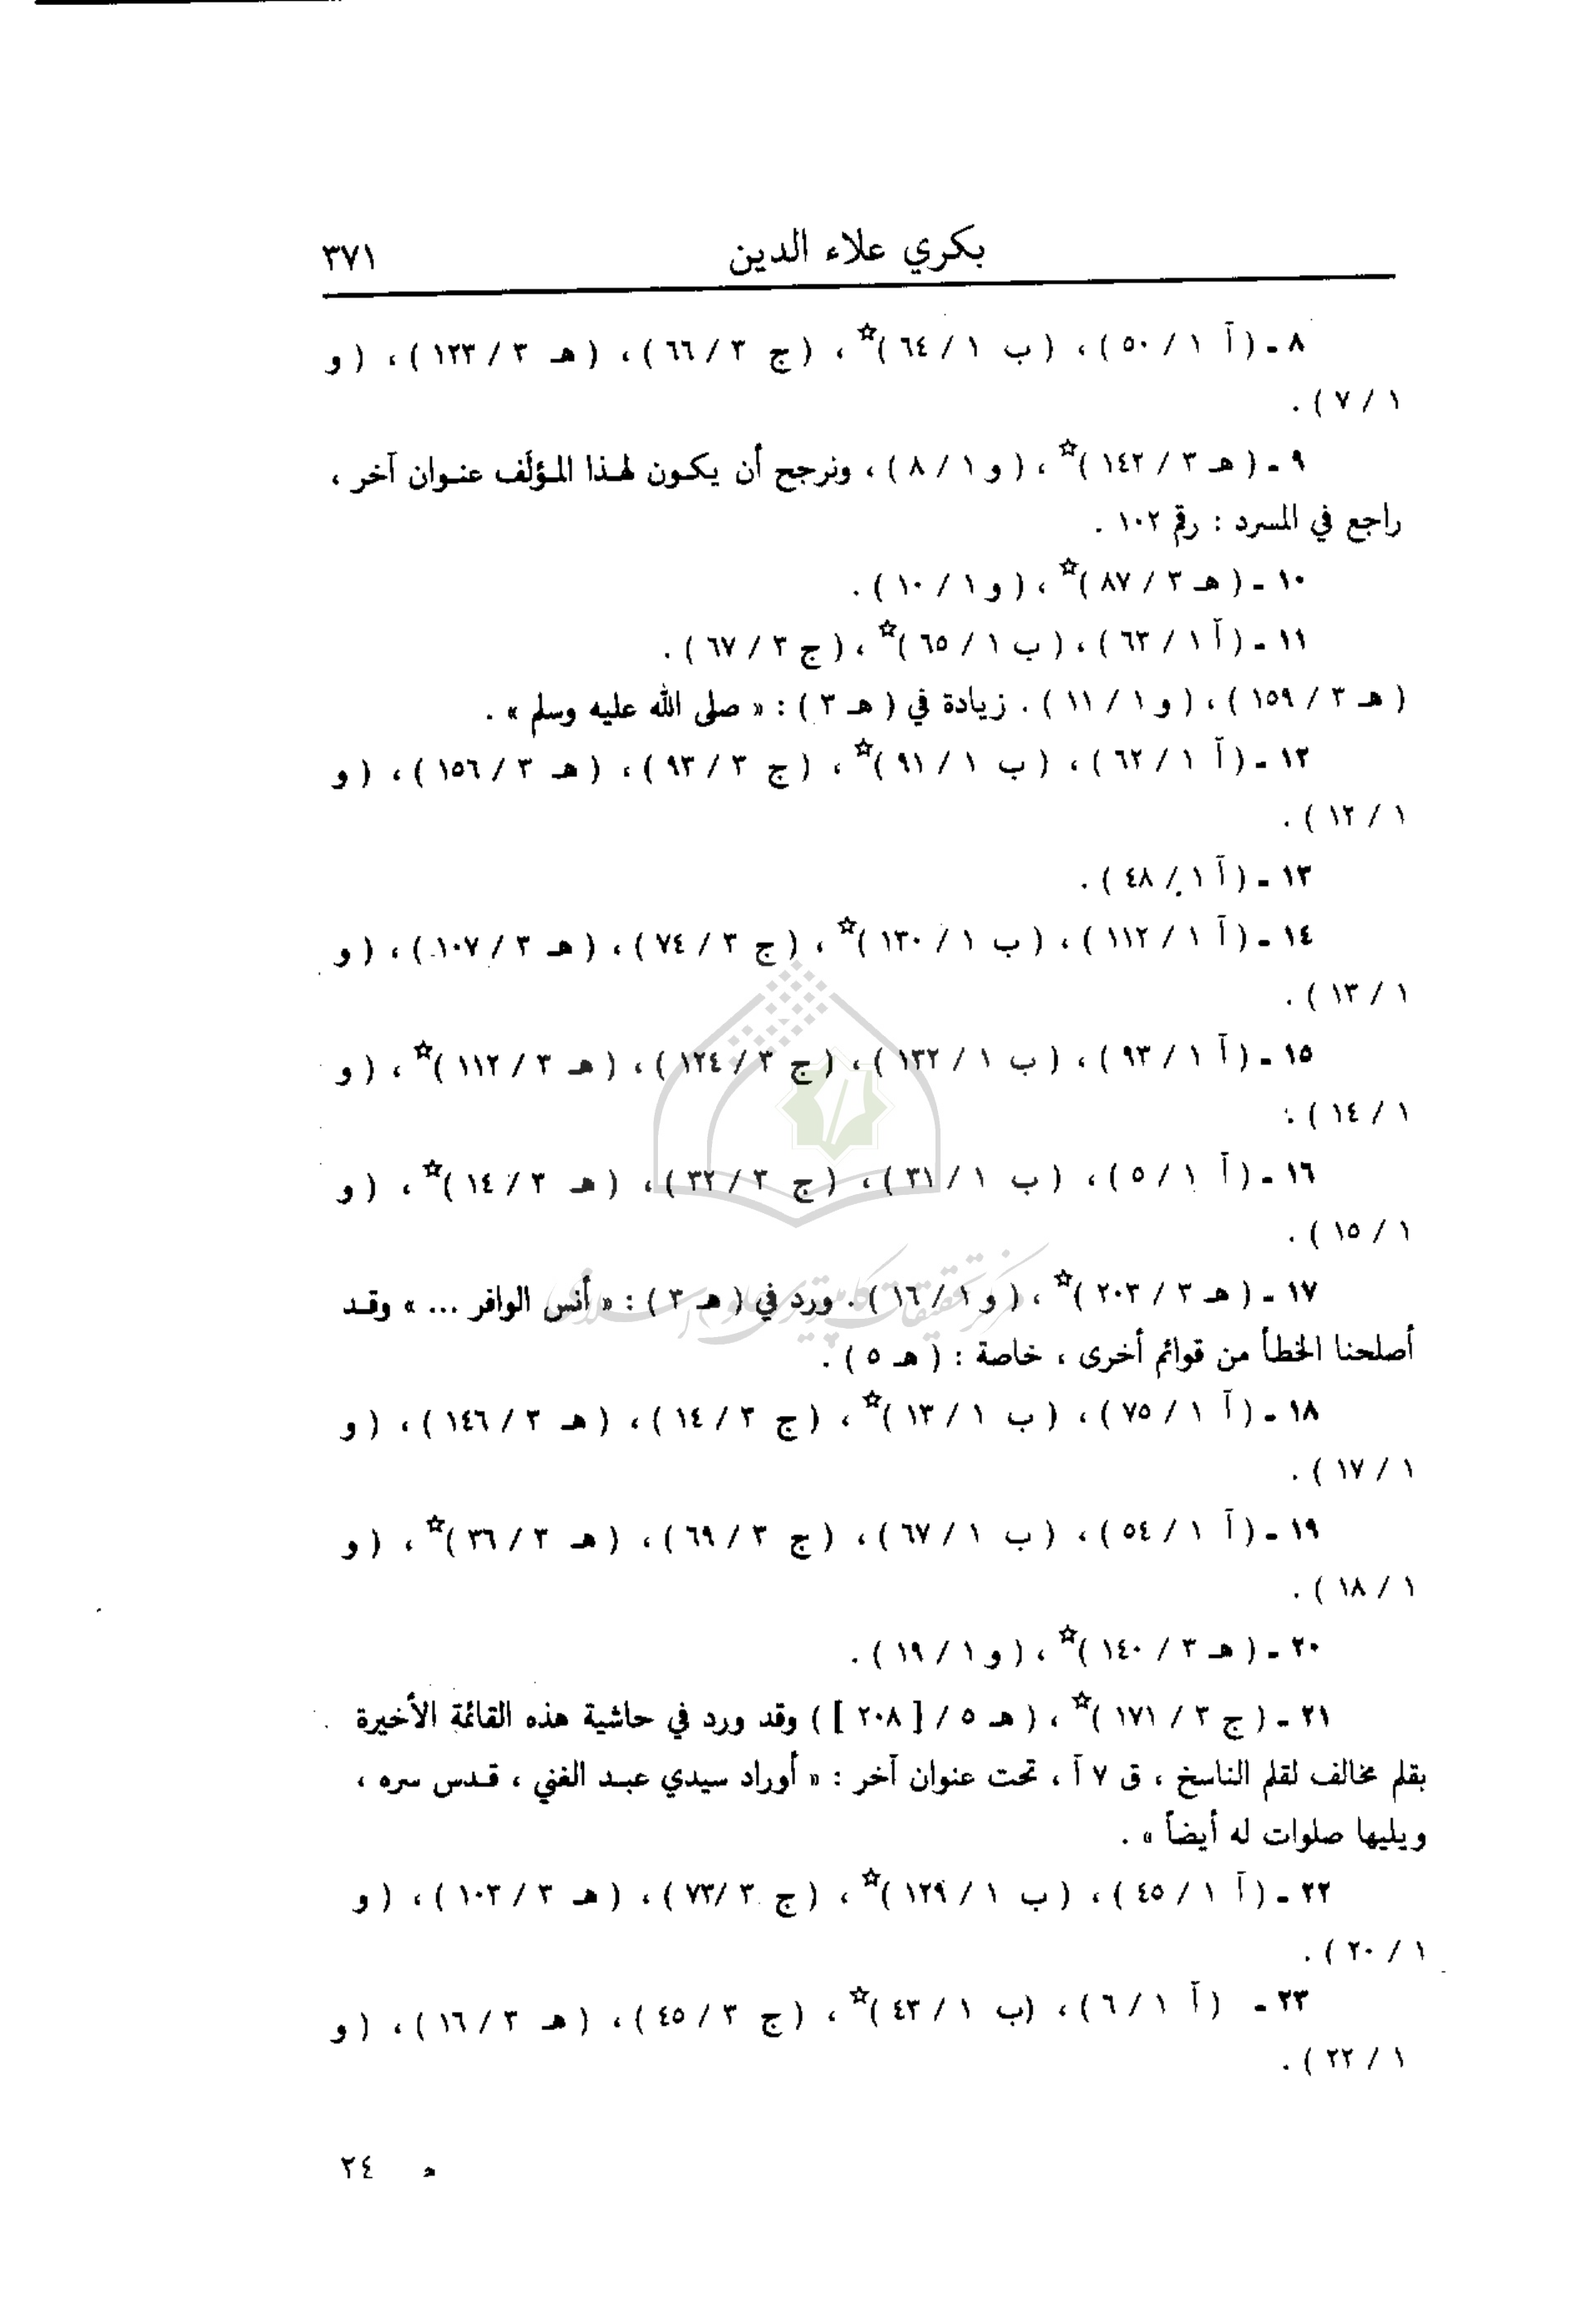 بكري علاء الدين ٣٧١
٨ ـ ( آ ١ / ٥٠ ) ، ( ب ١ / ٦٤ )☆ ، ( ج ٣ / ٦٦ ) ، ( هـ ٣ / ١٢٣ ) ، ( و
١ / ٧ ) .
٩ ـ ( هـ ٣ / ١٤٢ )☆ ، ( و ١ / ٨ ) ، ونرجح أن يكون لهذا المؤلَف عنوان آخر ،
راجع في المسرد : رقم ١٠٢ .
١٠ ـ ( هـ ٣ / ٨٧ )☆ ، ( و ١ / ١٠ ) .
١١ ـ ( آ ١ / ٦٣ ) ، ( ب ١ / ٦٥ )☆ ، ( ج ٣ / ٦٧ ) .
( هـ ٣ / ١٥٩ ) ، ( و ١ / ١١ ) . زيادة في ( هـ ٣ ) : « صلى الله عليه وسلم » .
١٢ ـ ( آ ١ / ٦٢ ) ، ( ب ١ / ٩١ )☆ ، ( ج ٣ / ٩٣ ) ، ( هـ ٣ / ١٥٦ ) ، ( و
١ / ١٢ ) .
١٣ ـ ( آ ١ / ٤٨ ) .
١٤ ـ ( آ ١ / ١١٢ ) ، ( ب ١ / ١٣٠ )☆ ، ( ج ٣ / ٧٤ ) ، ( هـ ٣ / ١٠٧ ) ، ( و
١ / ١٣ ) .
١٥ ـ ( آ ١ / ٩٣ ) ، ( ب ١ / ١٣٢ ) ، ( ج ٣ / ١٢٤ ) ، ( هـ ٣ / ١١٢ )☆ ، ( و
١ / ١٤ ) .
١٦ ـ ( آ ١ / ٥ ) ، ( ب ١ / ٣١ ) ، ( ج ٣ / ٣٢ ) ، ( هـ ٣ / ١٤ )☆ ، ( و
١ / ١٥ ) .
١٧ ـ ( هـ ٣ / ٢٠٣ )☆ ، ( و ١ / ١٦ ) . ورد في ( هـ ٣ ) : « أنس الوافر ... » وقد
أصلحنا الخطأ من قوائم أخرى ، خاصة : ( هـ ٥ ) .
١٨ ـ ( آ ١ / ٧٥ ) ، ( ب ١ / ١٣ )☆ ، ( ج ٣ / ١٤ ) ، ( هـ ٣ / ١٤٦ ) ، ( و
١ / ١٧ ) .
١٩ ـ ( آ ١ / ٥٤ ) ، ( ب ١ / ٦٧ ) ، ( ج ٣ / ٦٩ ) ، ( هـ ٣ / ٣٦ )☆ ، ( و
١ / ١٨ ) .
٢٠ ـ ( هـ ٣ / ١٤٠ )☆ ، ( و ١ / ١٩ ) .
٢١ ـ ( ج ٣ / ١٧١ )☆ ، ( هـ ٥ / [ ٢٠٨ ] ) وقد ورد في حاشية هذه القائمة الأخيرة
بقلم مخالف لقلم الناسخ ، ق ٧ آ ، تحت عنوان آخر : « أوراد سيدي عبد الغني ، قدس سره ،
ويليها صلوات له أيضاً » .
٢٢ ـ ( آ ١ / ٤٥ ) ، ( ب ١ / ١٢٩ )☆ ، ( ج ٣ / ٧٣ ) ، ( هـ ٣ / ١٠٣ ) ، ( و
١ / ٢٠ ) .
٢٣ ـ ( آ ١ / ٦ ) ، (ب ١ / ٤٣ )☆ ، ( ج ٣ / ٤٥ ) ، ( هـ ٣ / ١٦ ) ، ( و
١ / ٢٢ ) .
٢٤